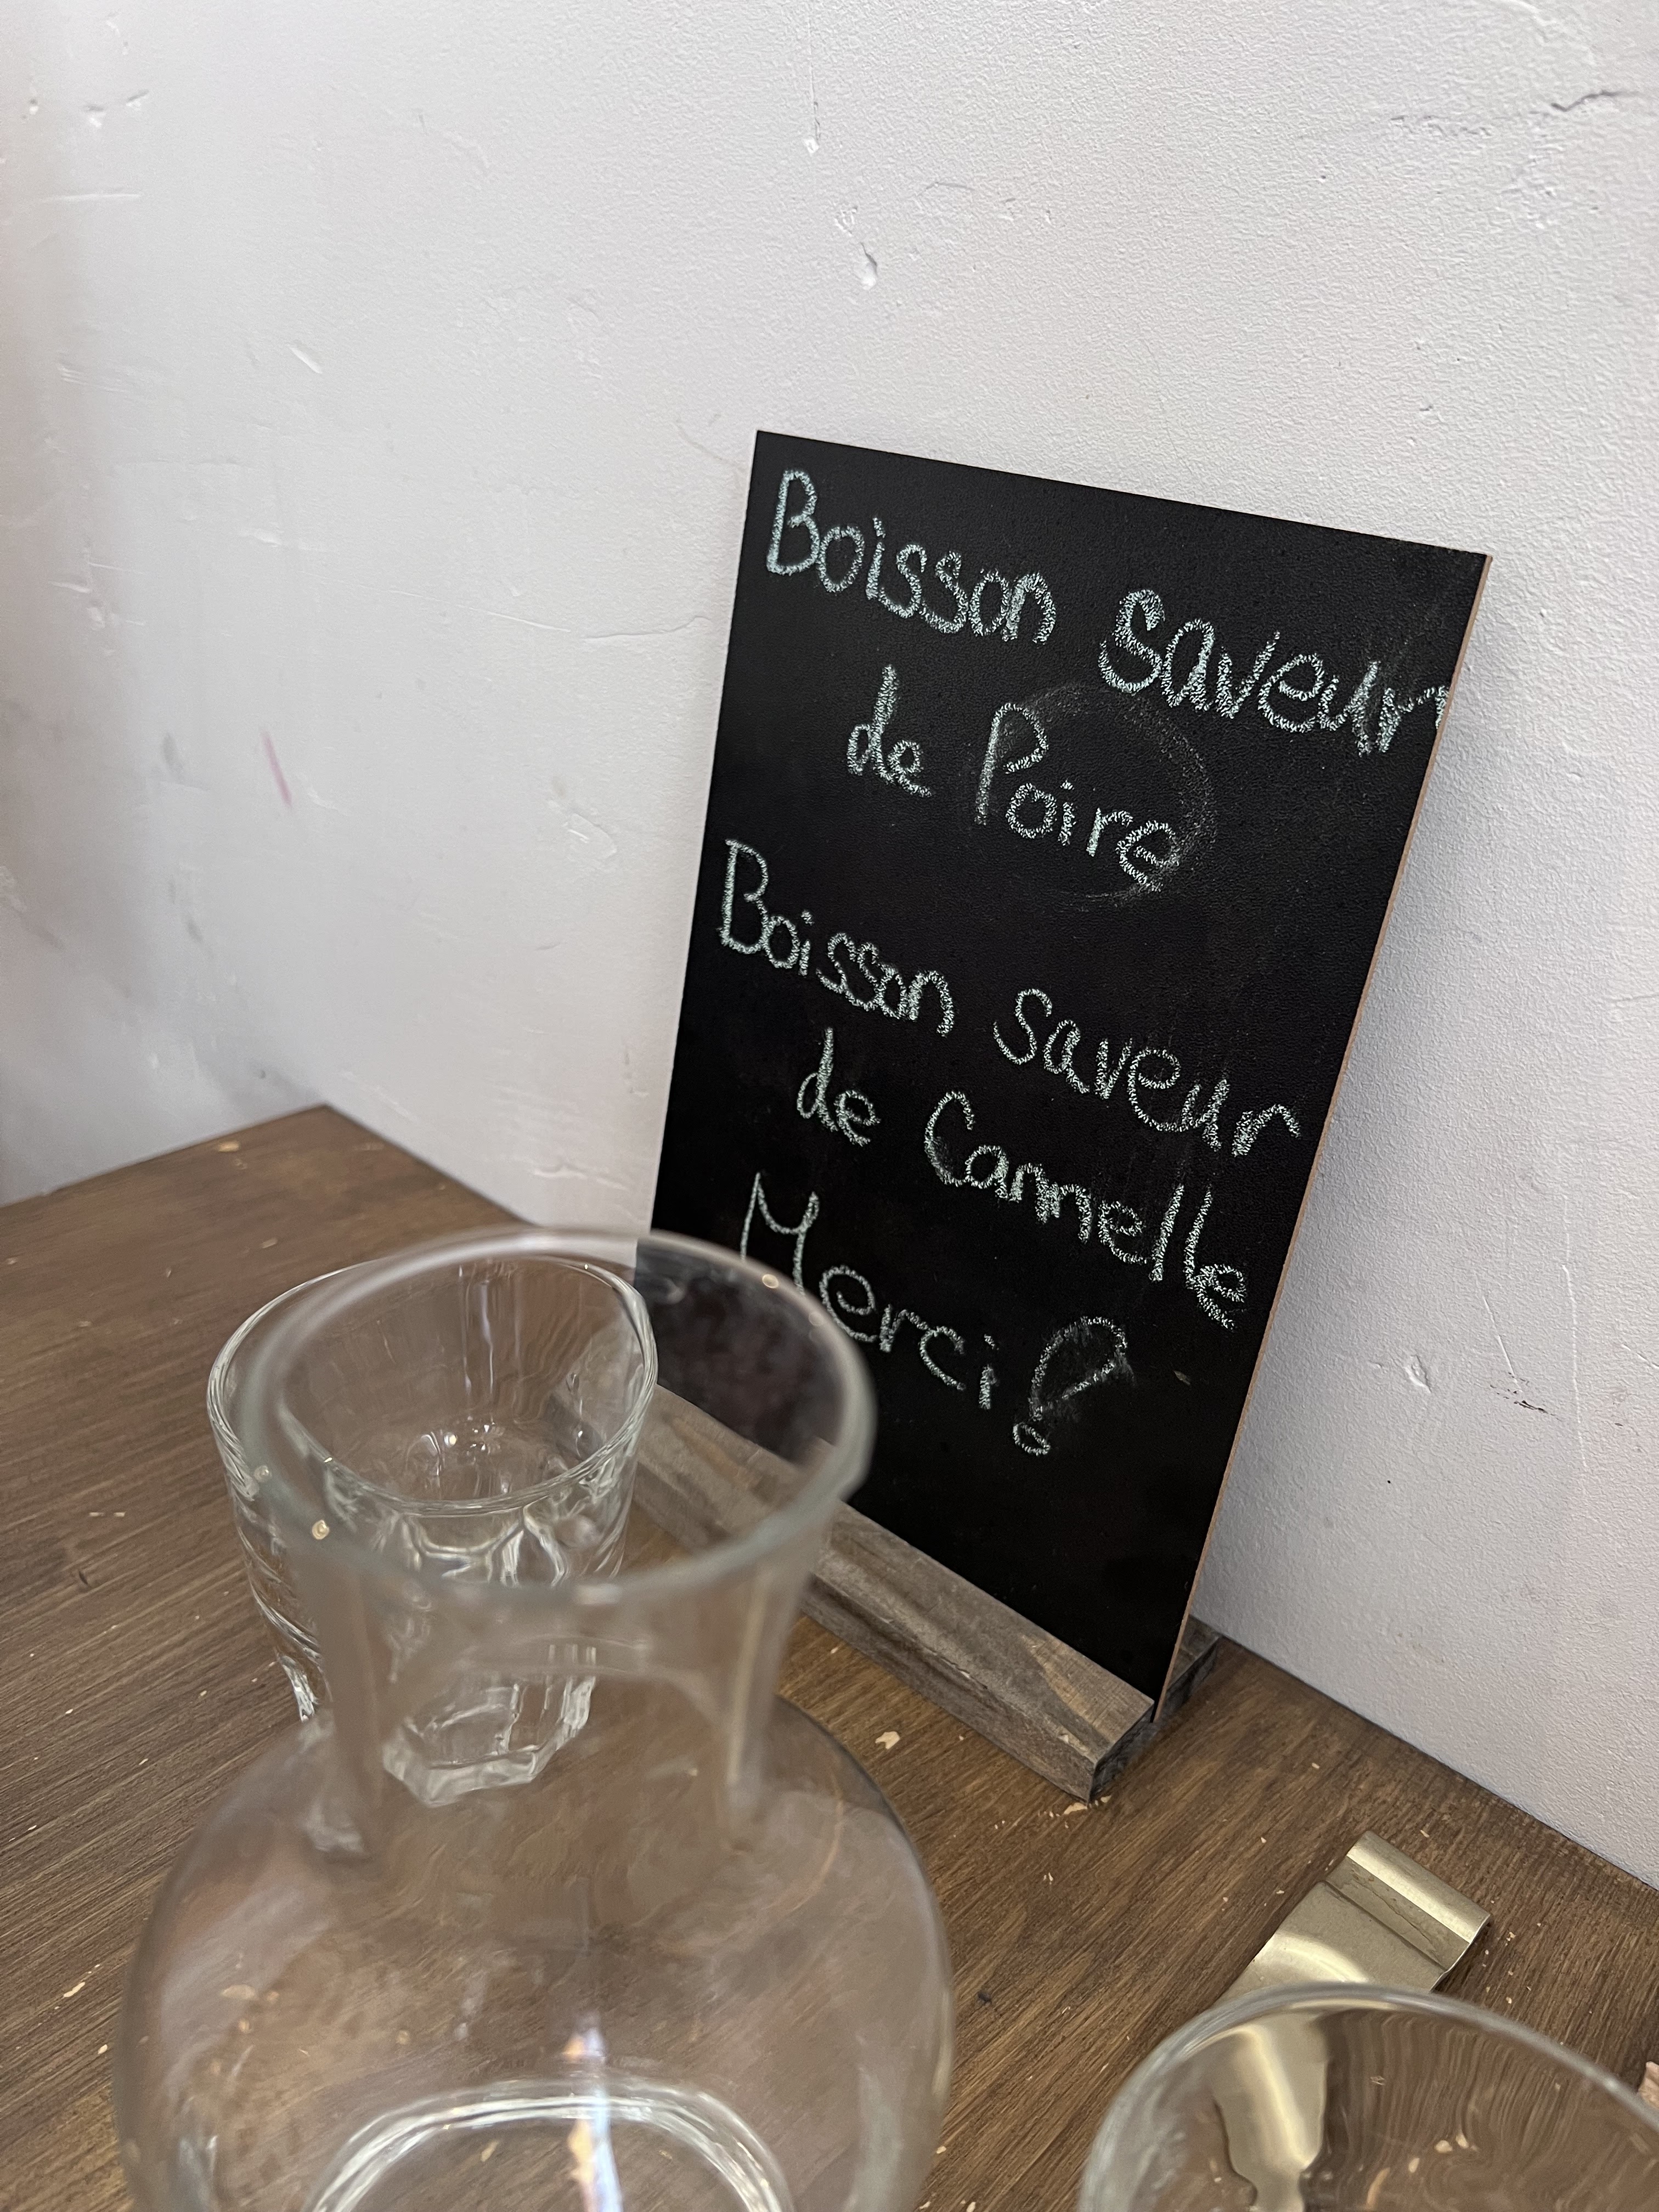 Boisson saveur
de Poire
Boisson saveur
de Cannelle
Merci !